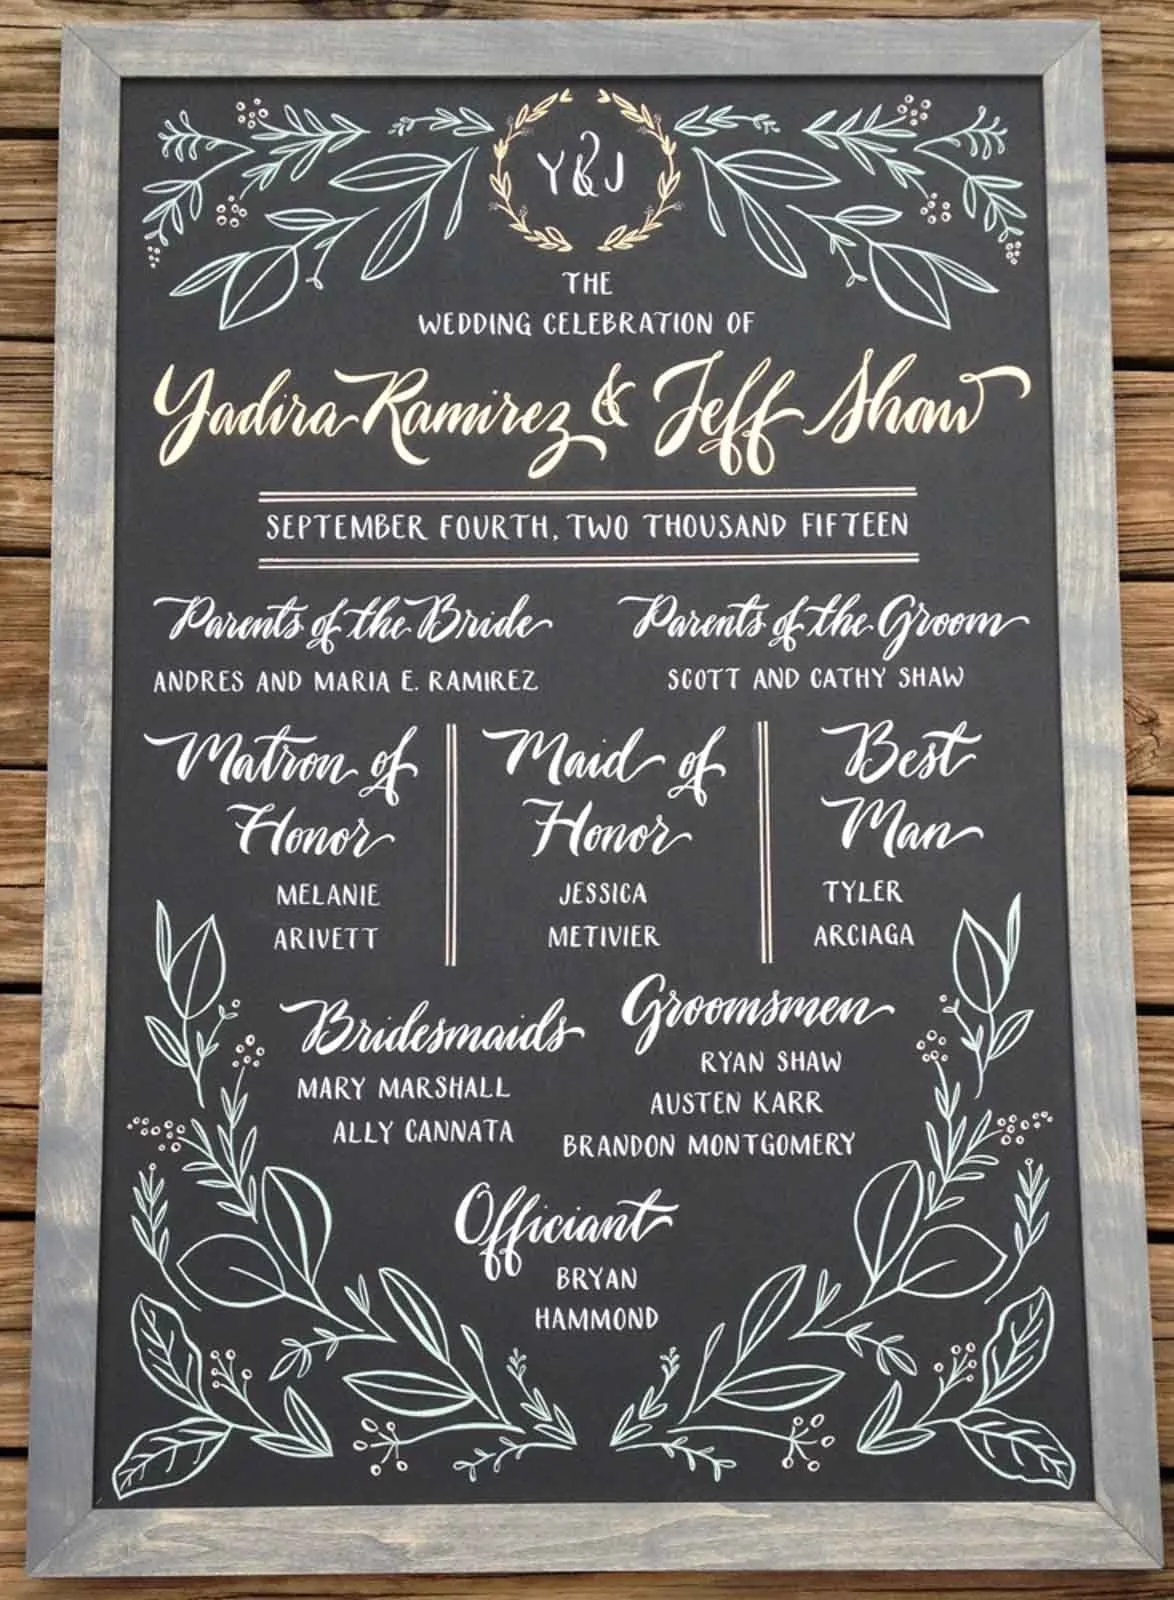 Y & J
THE
WEDDING CELEBRATION OF
Yadira Ramirez & Jeff Shaw
SEPTEMBER FOURTH, TWO THOUSAND FIFTEEN
Parents of the Bride
ANDRES AND MARIA E. RAMIREZ
Parents of the Groom
SCOTT AND CATHY SHAW
Matron of
Honor
MELANIE
ARIVETT
Maid of
Honor
JESSICA
METIVIER
Best
Man
TYLER
ARCIAGA
Bridesmaids
MARY MARSHALL
ALLY CANNATA
Groomsmen
RYAN SHAW
AUSTEN KARR
BRANDON MONTGOMERY
Officiant
BRYAN
HAMMOND